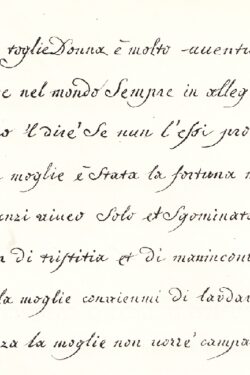 toglie Donna è molto auentu
e nel mondo Sempre in alleg
o 'l dirè Se nun l'essi pro
moglie è Stata la fortuna m
nzi viueo Solo et Sgominat
di tristitia et di maninconi
la moglie conviemmi di laudar
za la moglie non vorrè campa